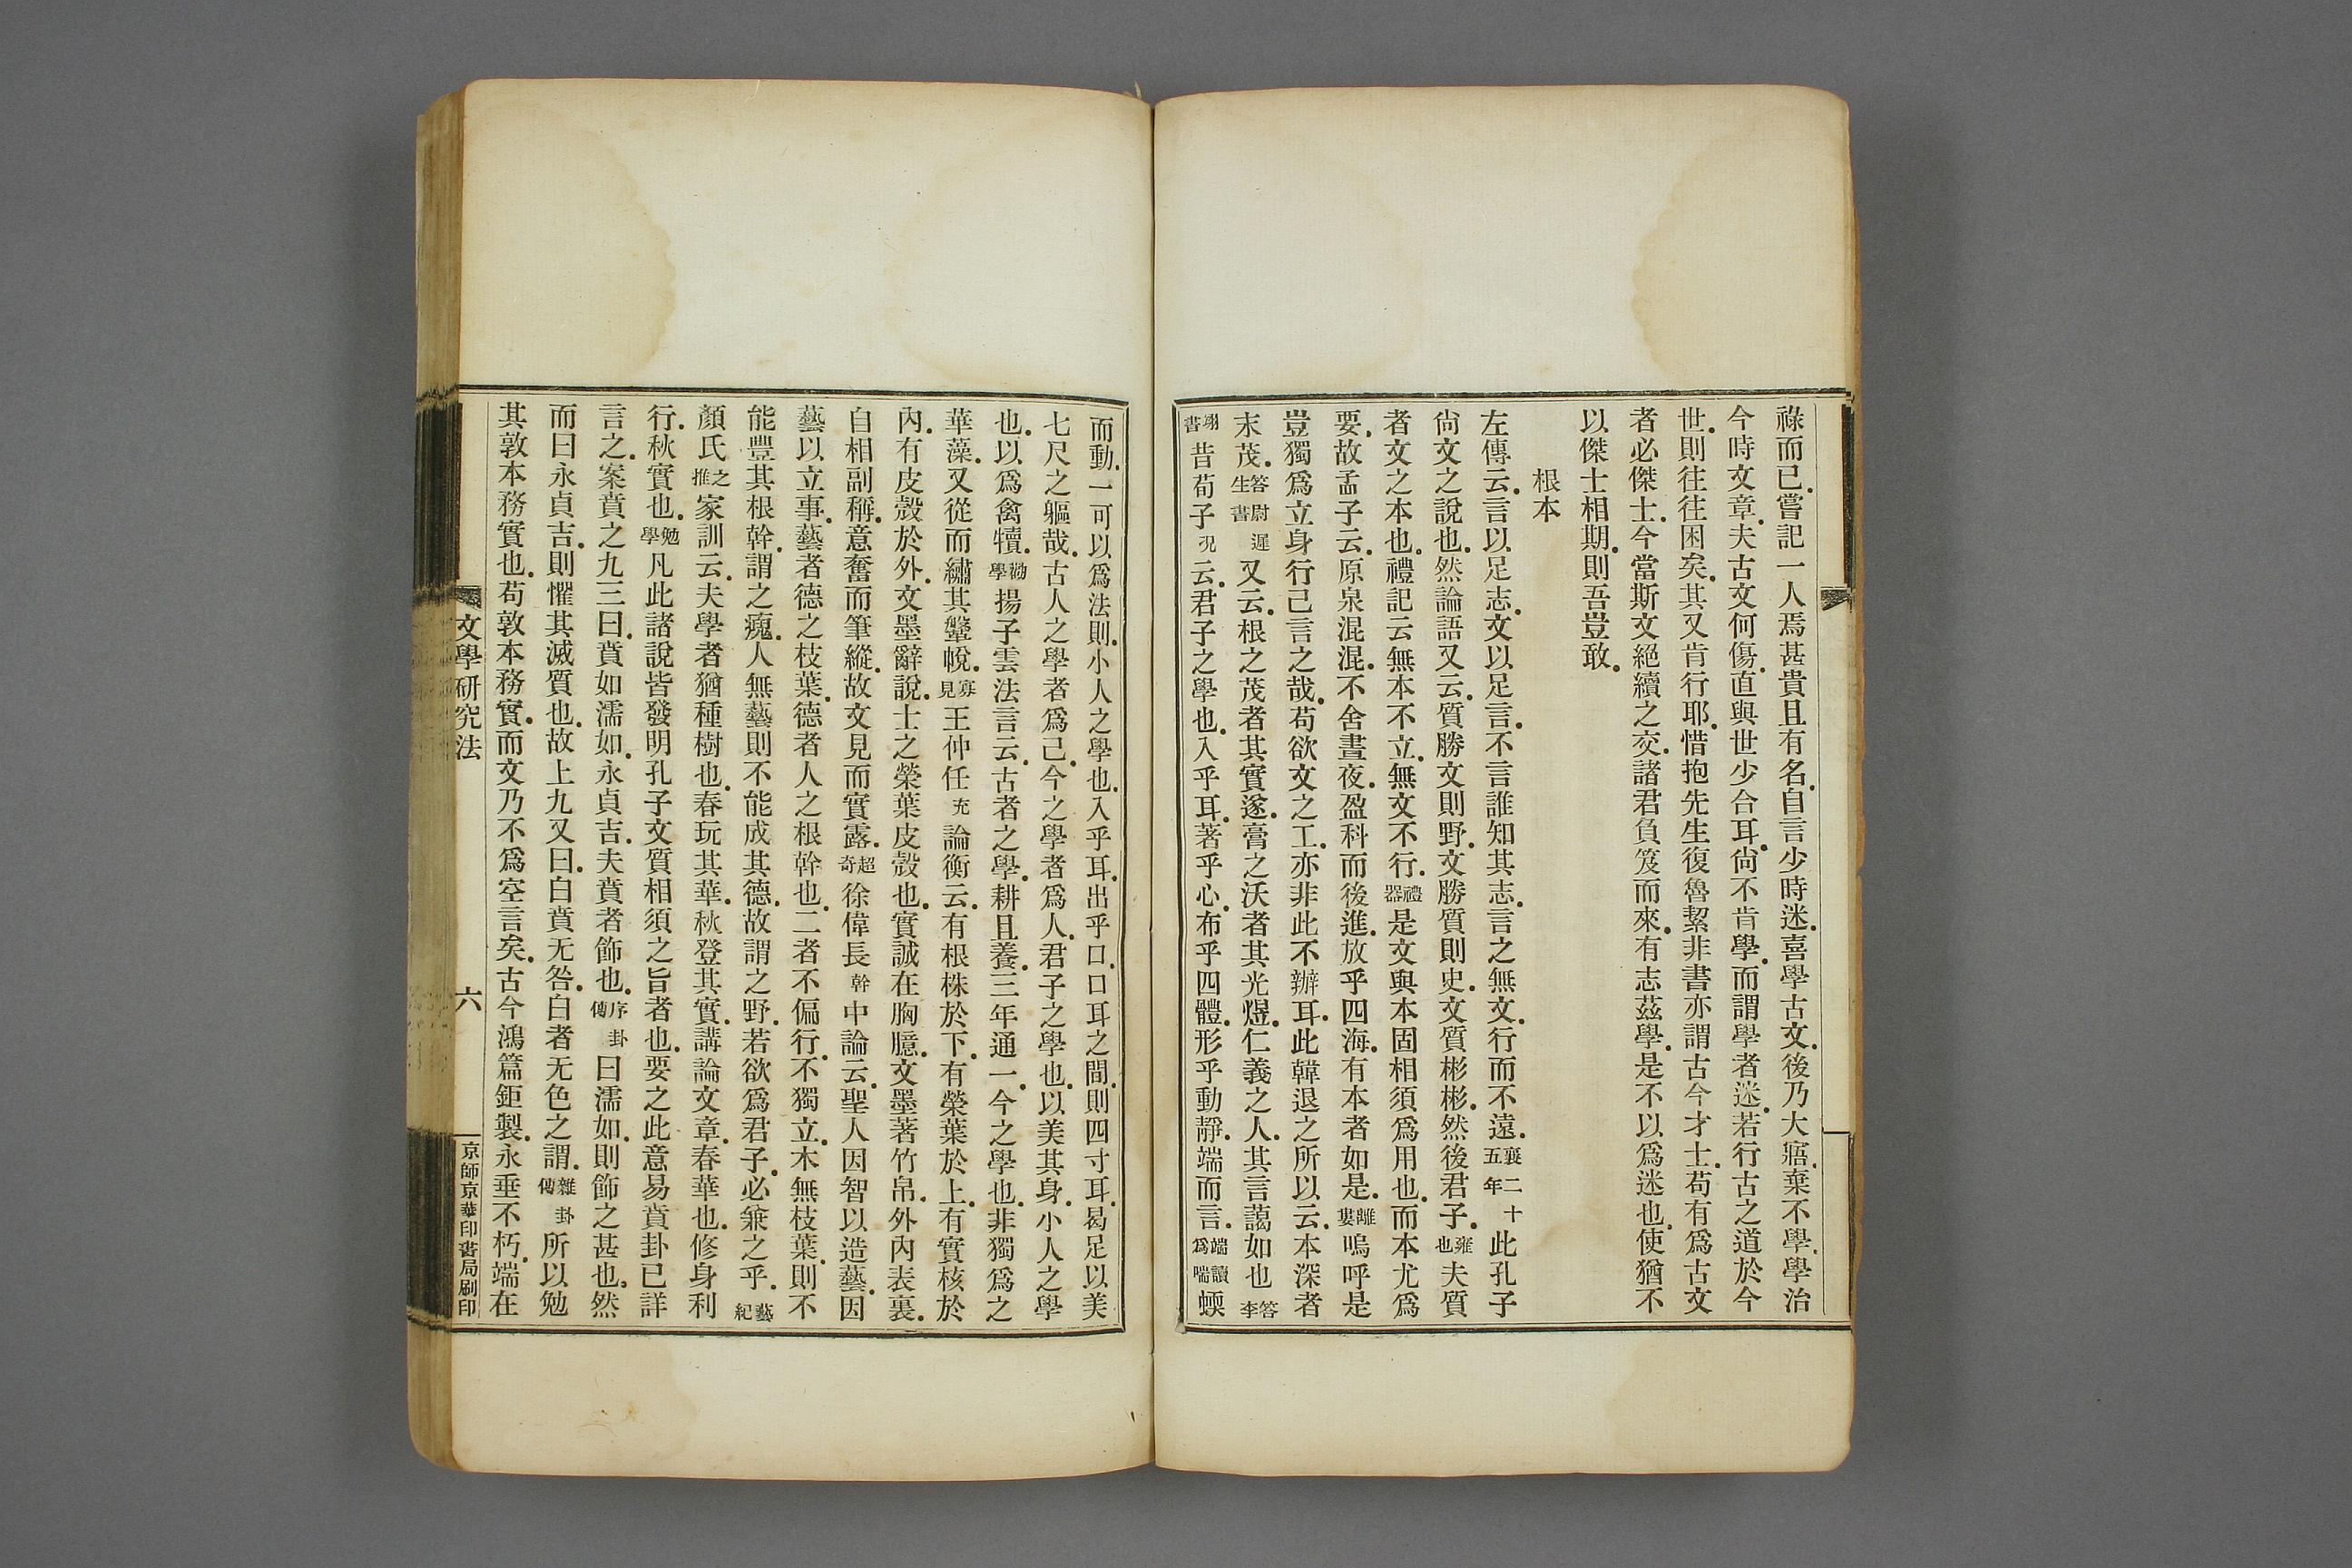 祿而已.嘗記一人焉甚貴且有名.自言少時迷.喜學古文.後乃大寤.棄不學.學治
今時文章.夫古文何傷.直與世少合耳.尙不肯學.而謂學者迷.若行古之道於今
世.則往往困矣.其又肯行耶.惜抱先生復魯絜非書亦謂古今才士.苟有爲古文
者必傑士.今當斯文絕續之交.諸君負笈而來.有志茲學.是不以爲迷也.使猶不
以傑士相期.則吾豈敢.
根本
左傳云.言以足志.文以足言.不言誰知其志.言之無文.行而不遠.襄二十五年此孔子
尙文之說也.然論語又云.質勝文則野.文勝質則史.文質彬彬.然後君子.雍也夫質
者文之本也.禮記云無本不立.無文不行.禮器是文與本固相須爲用也.而本尤爲
要.故孟子云.原泉混混.不舍晝夜.盈科而後進.放乎四海.有本者如是.離婁嗚呼是
豈獨爲立身行己言之哉.苟欲文之工.亦非此不辦耳.此韓退之所以云.本深者
末茂.答尉遲生書又云.根之茂者其實遂.膏之沃者其光煜.仁義之人.其言藹如也答李
翊書昔荀子況云.君子之學也.入乎耳.著乎心.布乎四體.形乎動靜.端而言.端讀爲喘蝡
而動.一可以爲法則.小人之學也.入乎耳.出乎口.口耳之間.則四寸耳.曷足以美
七尺之軀哉.古人之學者爲己.今之學者爲人.君子之學也.以美其身.小人之學
也.以爲禽犢.勸學揚子雲法言云.古者之學.耕且養.三年通一.今之學也.非獨爲之
華藻.又從而繡其鞶帨.寡見王仲任充論衡云.有根株於下.有榮葉於上.有實核於
內.有皮殼於外.文墨辭說.士之榮葉皮殼也.實誠在胸臆.文墨著竹帛.外內表裏.
自相副稱.意奮而筆縱.故文見而實露.超奇徐偉長幹中論云.聖人因智以造藝.因
藝以立事.藝者德之枝葉.德者人之根幹也.二者不偏行.不獨立.木無枝葉.則不
能豐其根幹.謂之瘣.人無藝則不能成其德.故謂之野.若欲爲君子.必兼之乎.藝紀
顏氏之推家訓云.夫學者猶種樹也.春玩其華.秋登其實.講論文章.春華也.修身利
行.秋實也.勉學凡此諸說皆發明孔子文質相須之旨者也.要之此意易賁卦已詳
言之.案賁之九三曰.賁如濡如.永貞吉.夫賁者飾也.序卦傳曰濡如.則飾之甚也.然
而曰永貞吉.則懼其滅質也.故上九又曰.白賁无咎.白者无色之謂.雜卦傳所以勉
其敦本務實也.苟敦本務實.而文乃不爲空言矣.古今鴻篇鉅製.永垂不朽.端在
文學硏究法
六
京師京華印書局刷印